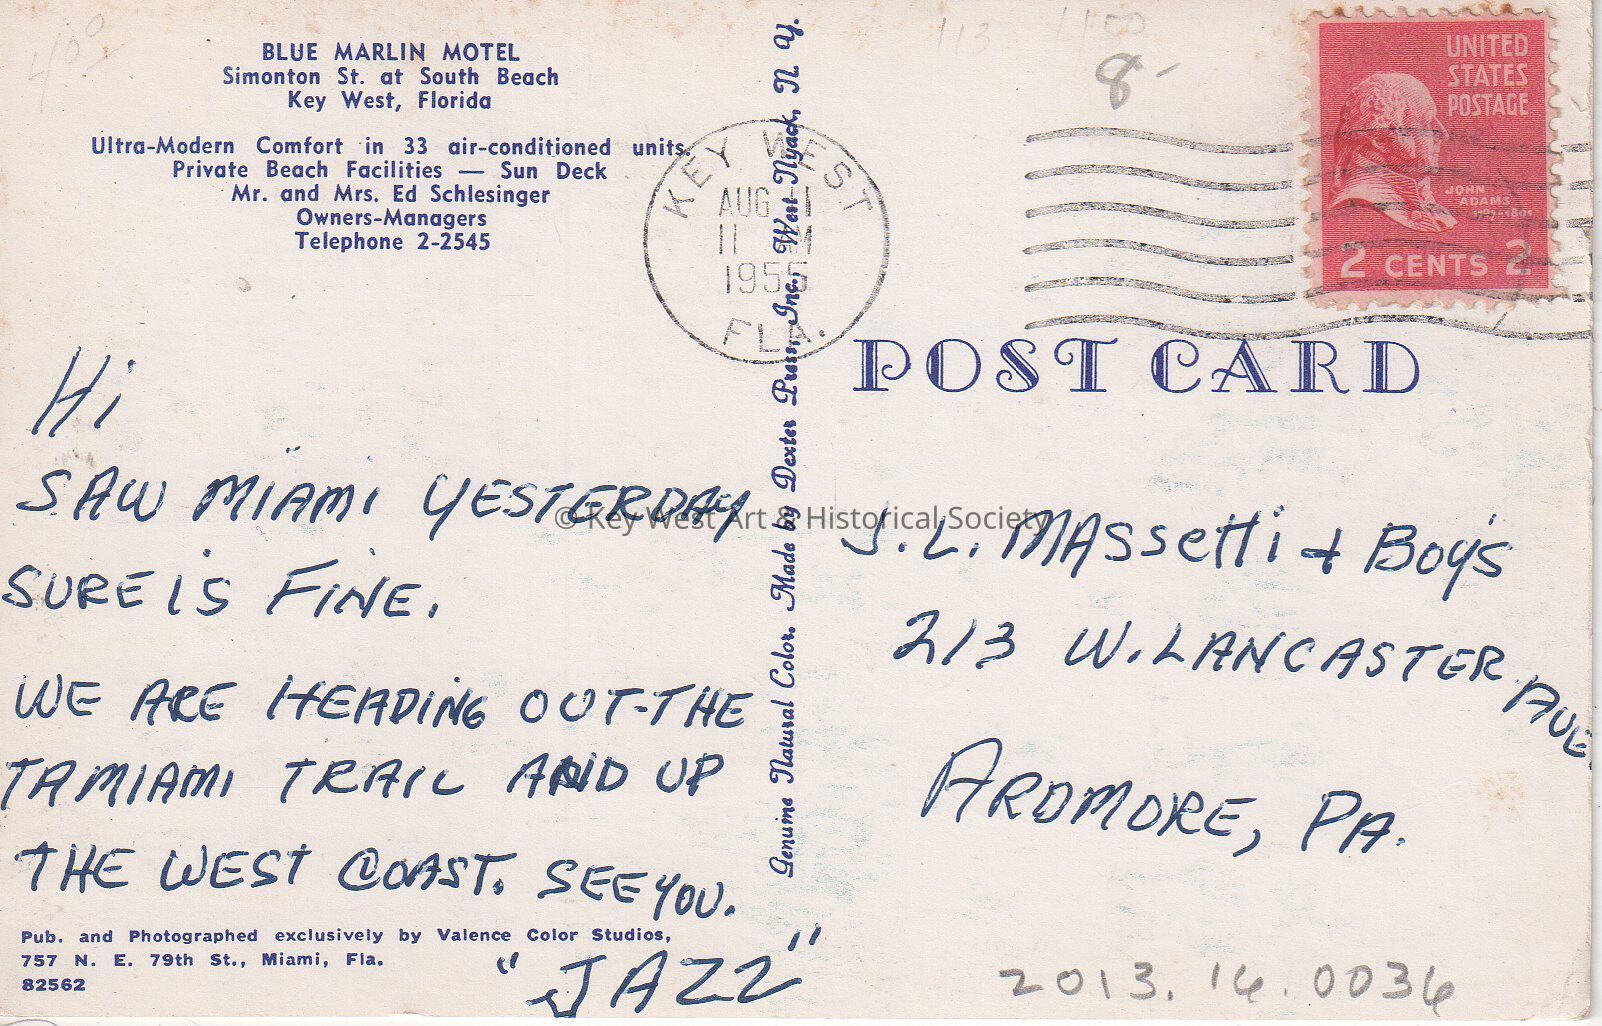 BLUE MARLIN MOTEL
Simonton St. at South Beach
Key West, Florida
Ultra-Modern Comfort in 33 air-conditioned units.
Private Beach Facilities — Sun Deck
Mr. and Mrs. Ed Schlesinger
Owners-Managers
Telephone 2-2545
Hi
SAW MIAMI YESTERDAY
SURE IS FINE.
WE ARE HEADING OUT-THE
TAMIAMI TRAIL AND UP
THE WEST COAST. SEE YOU.
"JAZZ"
Pub. and Photographed exclusively by Valence Color Studios,
757 N. E. 79th St., Miami, Fla.
82562
Genuine Natural Color. Made by Dexter Press, Inc. West Nyack, N. Y.
KEY WEST
AUG
11 M
1955
FLA.
8-
UNITED
STATES
POSTAGE
JOHN
ADAMS
1797-1801
2 CENTS 2
POST CARD
J. L. MASSETTI + BOY'S
213 W. LANCASTER AVE.
ARDMORE, PA.
2013.16.0036
© Key West Art & Historical Society